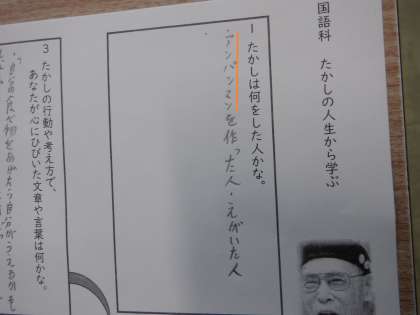 国語科 たかしの人生から学ぶ
1 たかしは何をした人かな。
・アンパンマンを作った人・えがいた人
3 たかしの行動や考え方で、
あなたが心にひびいた文章や言葉は何かな。